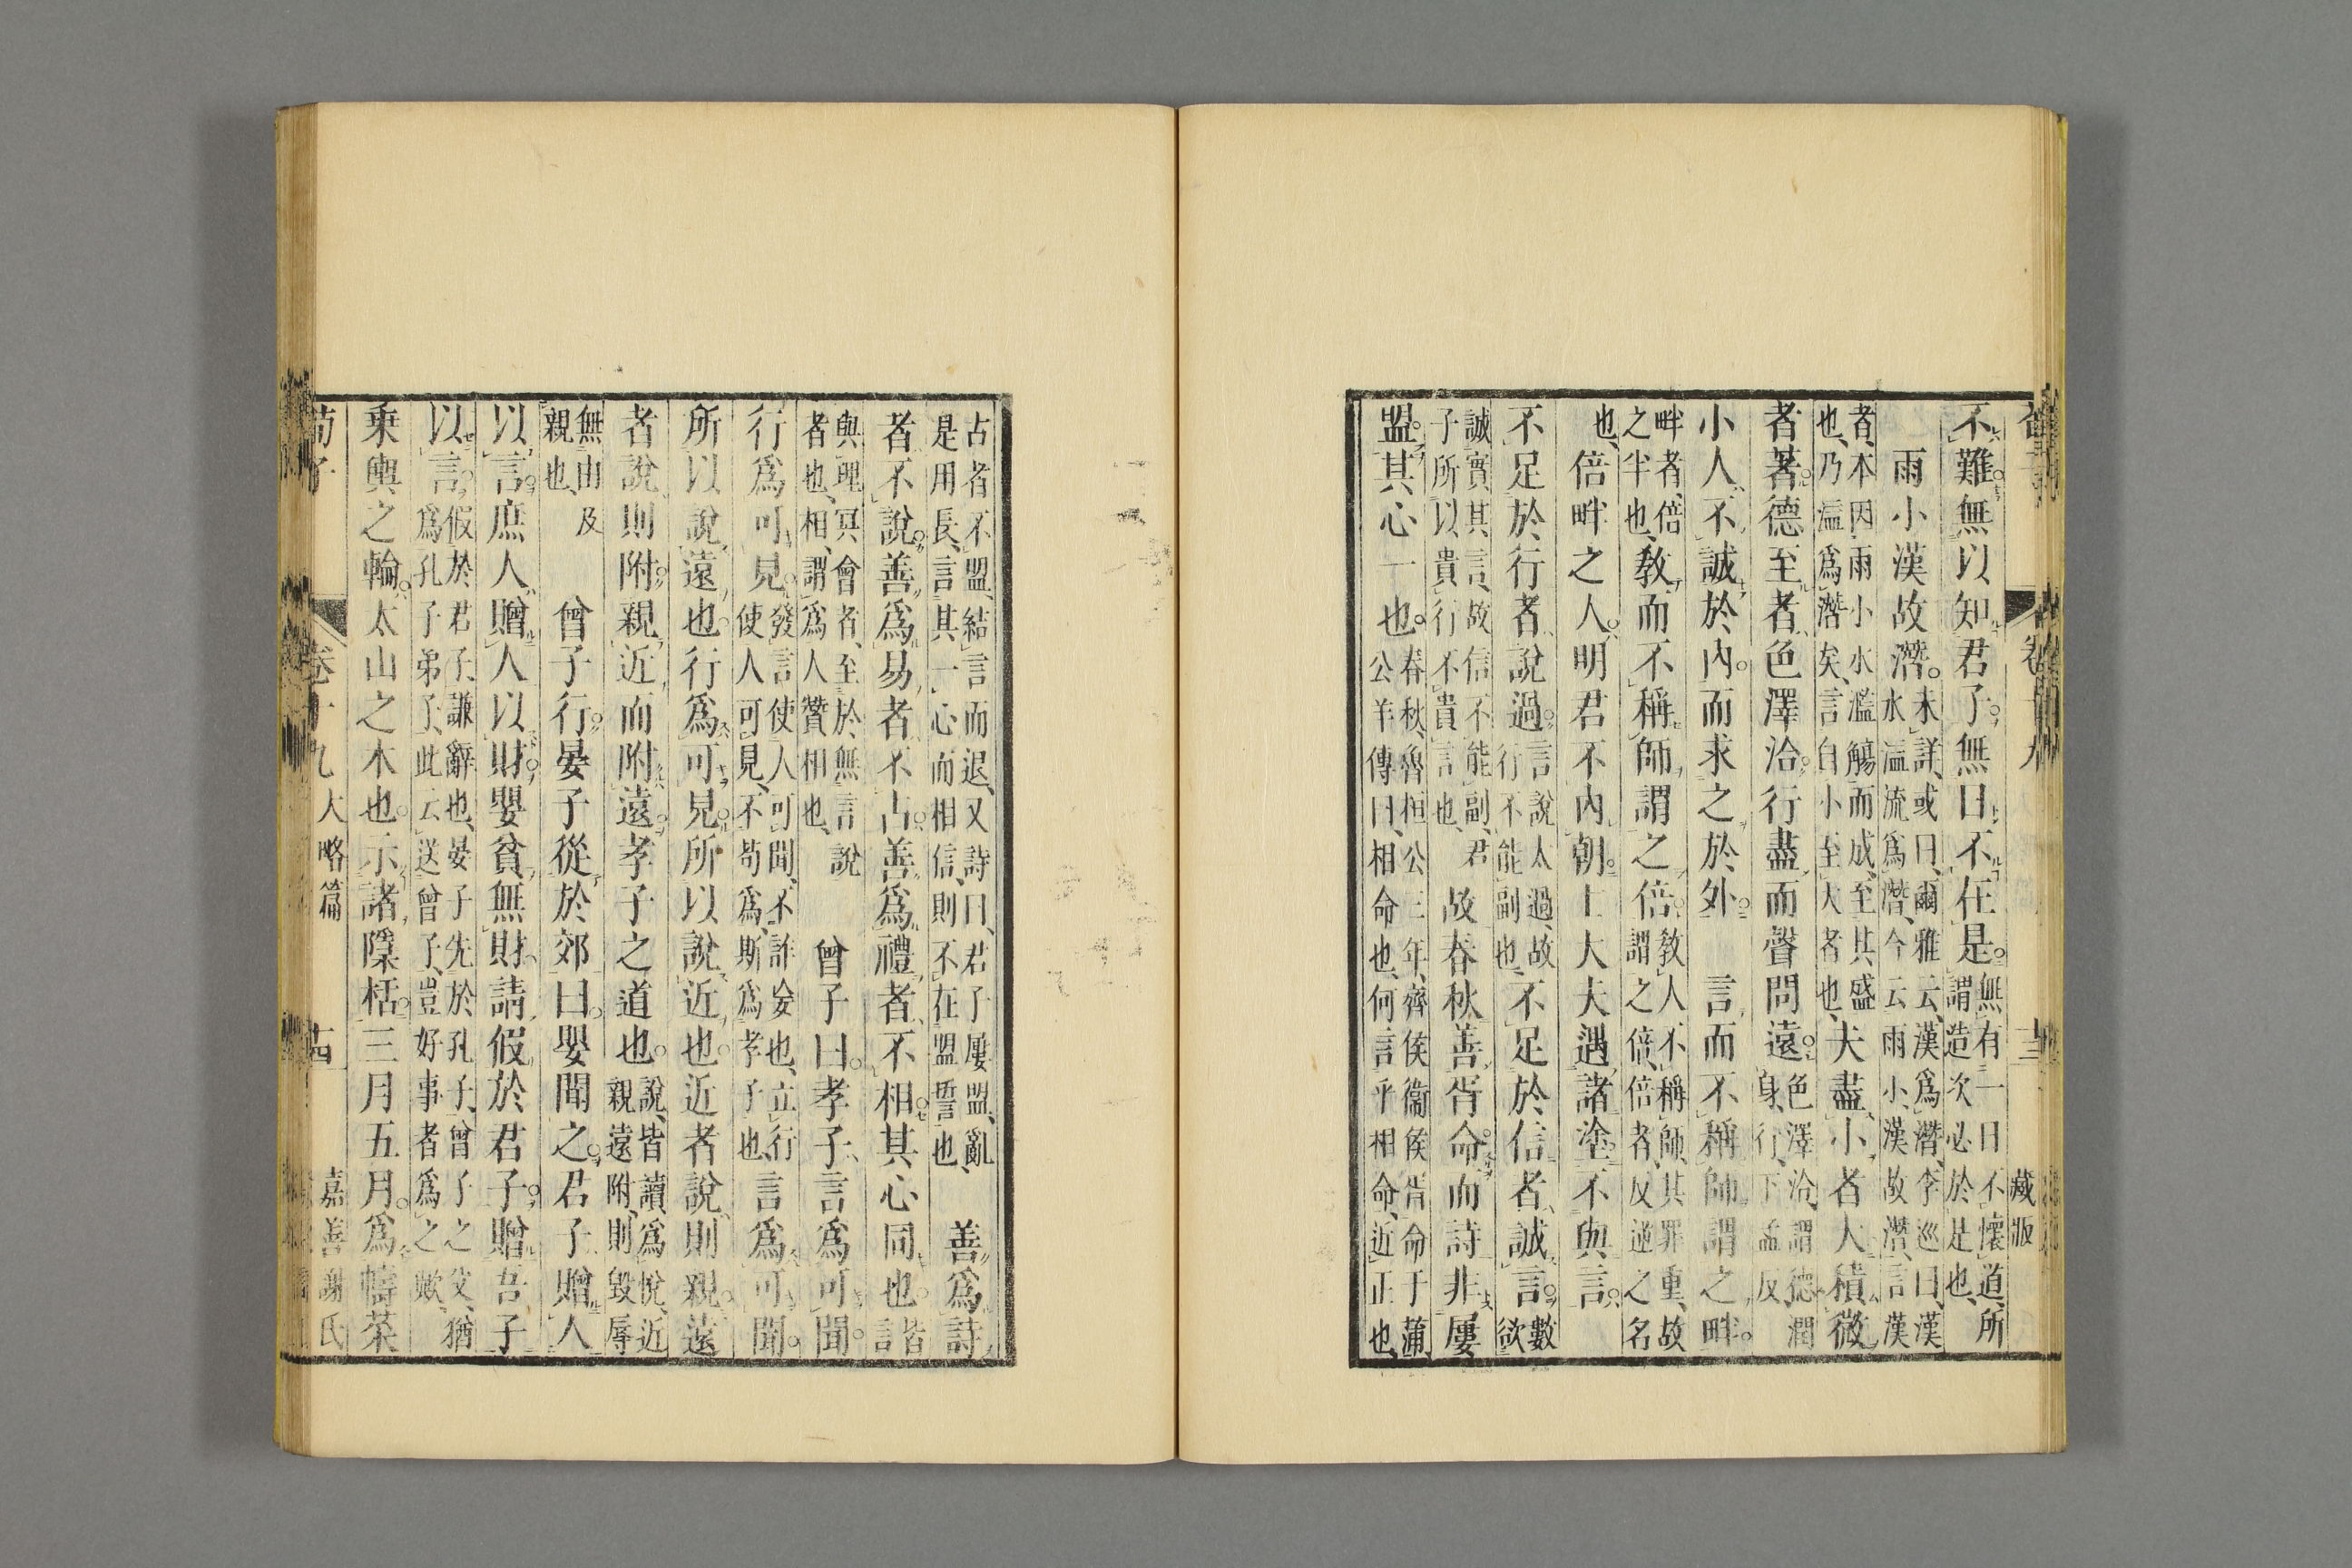 不難無以知君子無日不在是無有一日不懷道所
謂造次必於是也
雨小漢故潛未詳或曰爾雅云漢爲潛李巡曰漢
水溢流爲潛今云雨小漢故潛言漢
者本因雨小水濫觴而成至其盛
也乃溢爲潛矣言自小至大者也夫盡小者大積微
者著德至者色澤洽行盡而聲問遠色澤洽謂德潤
身行下孟反
小人不誠於內而求之於外　言而不稱師謂之畔
畔者倍
之半也教而不稱師謂之倍教人不稱師其罪重故
謂之倍倍者反逆之名
也倍畔之人明君不內朝士大夫遇諸塗不與言
不足於行者說過言說太過故
行不能副也不足於信者誠言數欲
誠實其言故信不能副君
子所以貴行不貴言也故春秋善胥命而詩非屢
盟其心一也春秋魯桓公三年齊侯衞侯胥命于蒲
公羊傳曰相命也何言乎相命近正也
藏版
占者不盟結言而退又詩曰君子屢盟亂
是用長言其一心而相信則不在盟誓也　善爲詩
者不說善爲易者不占善爲禮者不相其心同也皆言
與理冥會者至於無言說
者也相謂爲人贊相也　曾子曰孝子言爲可聞
行爲可見發言使人可聞不詐妄也立行
使人可見不苟爲斯爲孝子也言爲可聞
所以說遠也行爲可見所以說近也近者說則親遠
者說則附親近而附遠孝子之道也說皆讀爲悅近
親遠附則毀辱
無由及
親也　曾子行晏子從於郊曰嬰聞之君子贈人
以言庶人贈人以財嬰貧無財請假於君子贈吾子
以言假於君子謙辭也晏子先於孔子曾子之父猶
爲孔子弟子此云送曾子豈好事者爲之歟
乘輿之輪太山之木也示諸檃栝三月五月爲幬菜
荀子　卷十九　大略篇　十四　嘉善謝氏